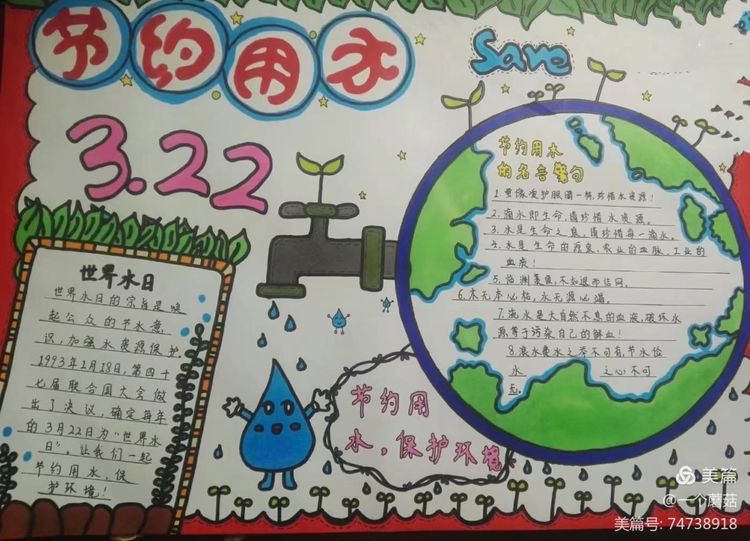 节约用水
Save
3.22
世界水日
世界水日的宗旨是唤
起公众的节水意
识,加强水资源保护
1993年1月18日,第四十
七届联合国大会做
出了决议,确定每年
的3月22日为“世界水
日”,让我们一起
节约用水,保
护环境!
节约用
水,保护环境
节约用水
的名言警句
1.要像爱护眼睛一样,珍惜水资源!
2.滴水即生命,请珍惜水资源。
3.水是生命之泉,请珍惜每一滴水。
4.水是生命的源泉,农业的血脉,工业的
血液!
5.临渊羡鱼,不如退而结网。
6.木无本必枯,水无源必涸。
7.海水是大自然不息的血液,破坏水
源等于污染自己的鲜血!
8.浪水费水之举不可有,节水惜
水 之心不可
无。
美篇
@一个蘑菇
美篇号: 74738918